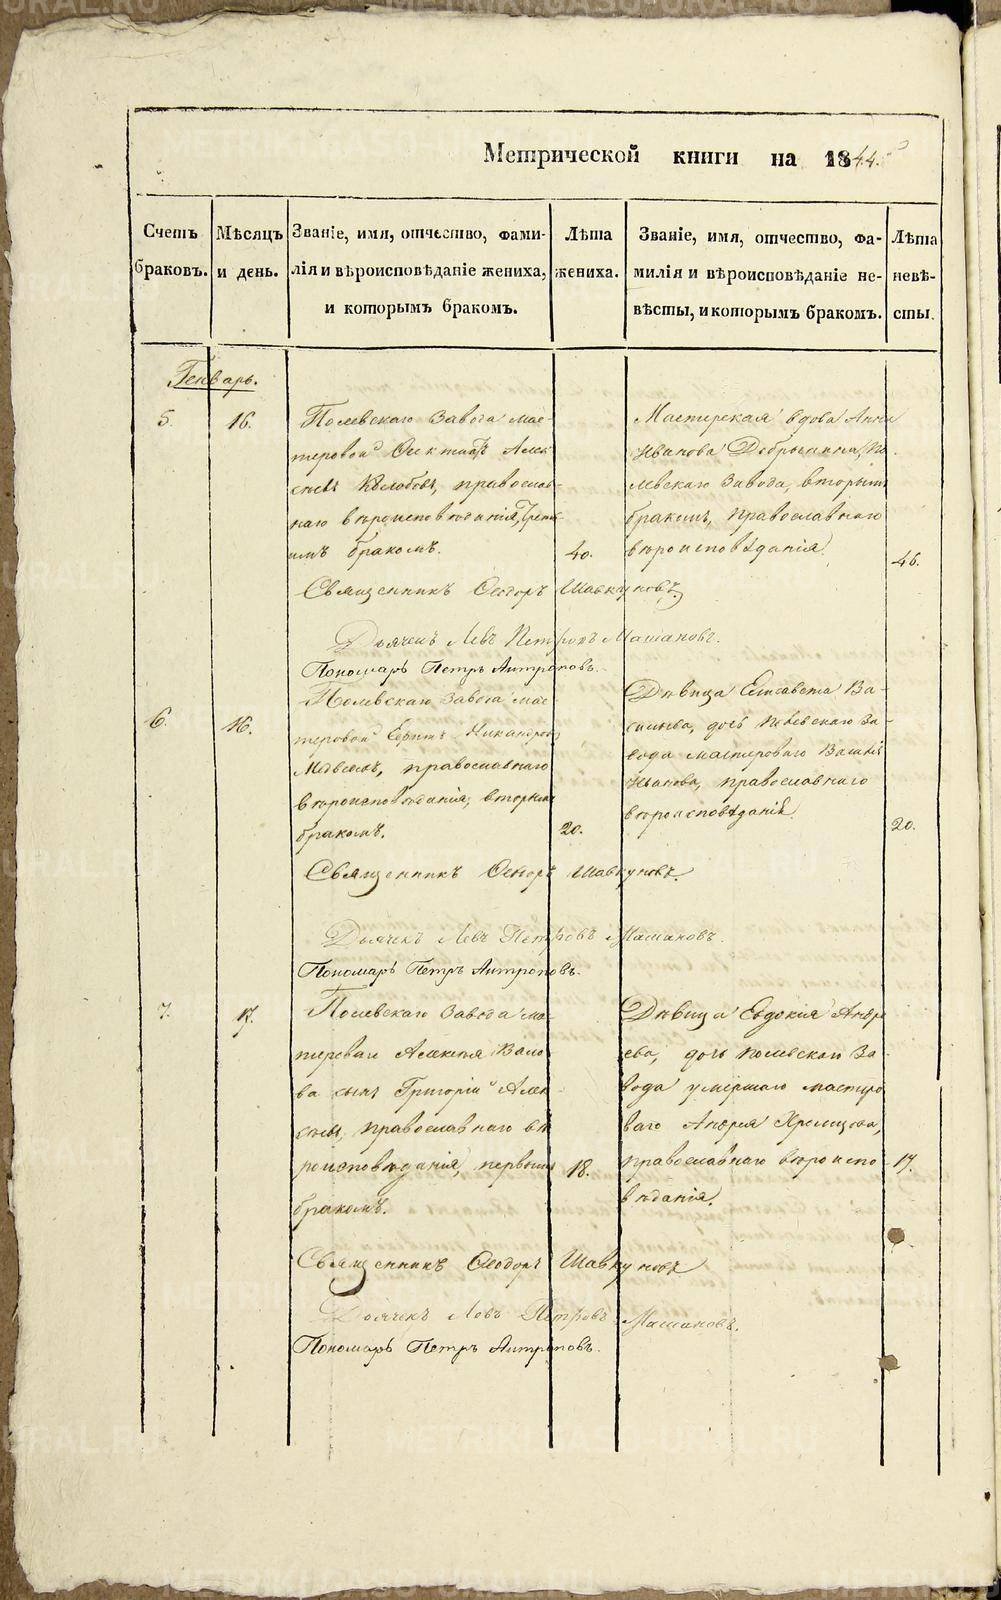 Метрической книги на 1844.
Счетъ браковъ.
Мѣсяцъ и день.
Званіе, имя, отчество, фами-
лія и вѣроисповѣданіе жениха,
и которымъ бракомъ.
Лѣта жениха.
Званіе, имя, отчество, фа-
милія и вѣроисповѣданіе не-
вѣсты, и которымъ бракомъ.
Лѣта невѣ-
сты.
Генварь.
5.
16.
Полевскаго Завода мас-
теровой Алек
сѣевъ православ-
наго вѣроисповѣданія, Треть-
имъ бракомъ.
40.
Мастерская вдова Анна
Иванова Добрынина, По
левскаго Завода, вторымъ
бракомъ, православнаго
вѣроисповѣданія.
46.
Священникъ Ѳеодоръ Шавкуновъ.
Дьячекъ Левъ Петровъ Машановъ.
Пономарь Петръ Антроповъ.
6.
16.
Полевскаго Завода мас-
теровой Никандровъ
православнаго
вѣроисповѣданія, вторымъ
бракомъ.
20.
Дѣвица Елисавета Ва-
сильева, дочь Полевскаго За-
вода мастероваго Василія
Иванова, православнаго
вѣроисповѣданія.
20.
Священникъ Ѳеодоръ Шавкуновъ.
Дьячекъ Левъ Петровъ Машановъ.
Пономарь Петръ Антроповъ.
7.
17.
Полевскаго Завода ма-
стероваго Алексѣя
сынъ Григорій Алек-
сѣевъ, православнаго вѣ
роисповѣданія, первымъ
бракомъ.
18.
Дѣвица Евдокія Андре
ева, дочь Полевскаго За-
вода умершаго мастеро
ваго Андрея
православнаго вѣроиспо-
вѣданія.
17.
Священникъ Ѳеодоръ Шавкуновъ
Дьячекъ Левъ Петровъ Машановъ.
Пономарь Петръ Антроповъ.